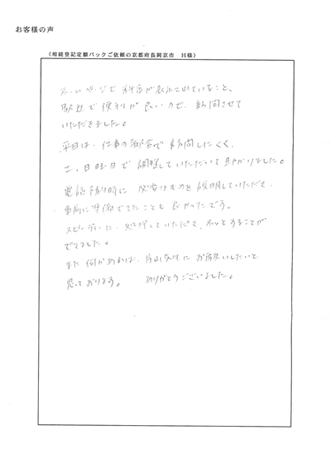 お客様の声
《相続登記定額パックご依頼の京都府長岡京市　H様》
ホームページで料金が表示されていること、
駅近で便利が良いので、訪問させて
いただきました。
平日は、仕事の都合で訪問しにくく、
土、日曜日で調整していただいて助かりました。
電話予約時に必要なものを説明していただき、
事前に準備できたことも良かったです。
スピーディに処理していただき、ホッとすることが
できました。
また何かあれば、お願いしたいと
思っております。　ありがとうございました。